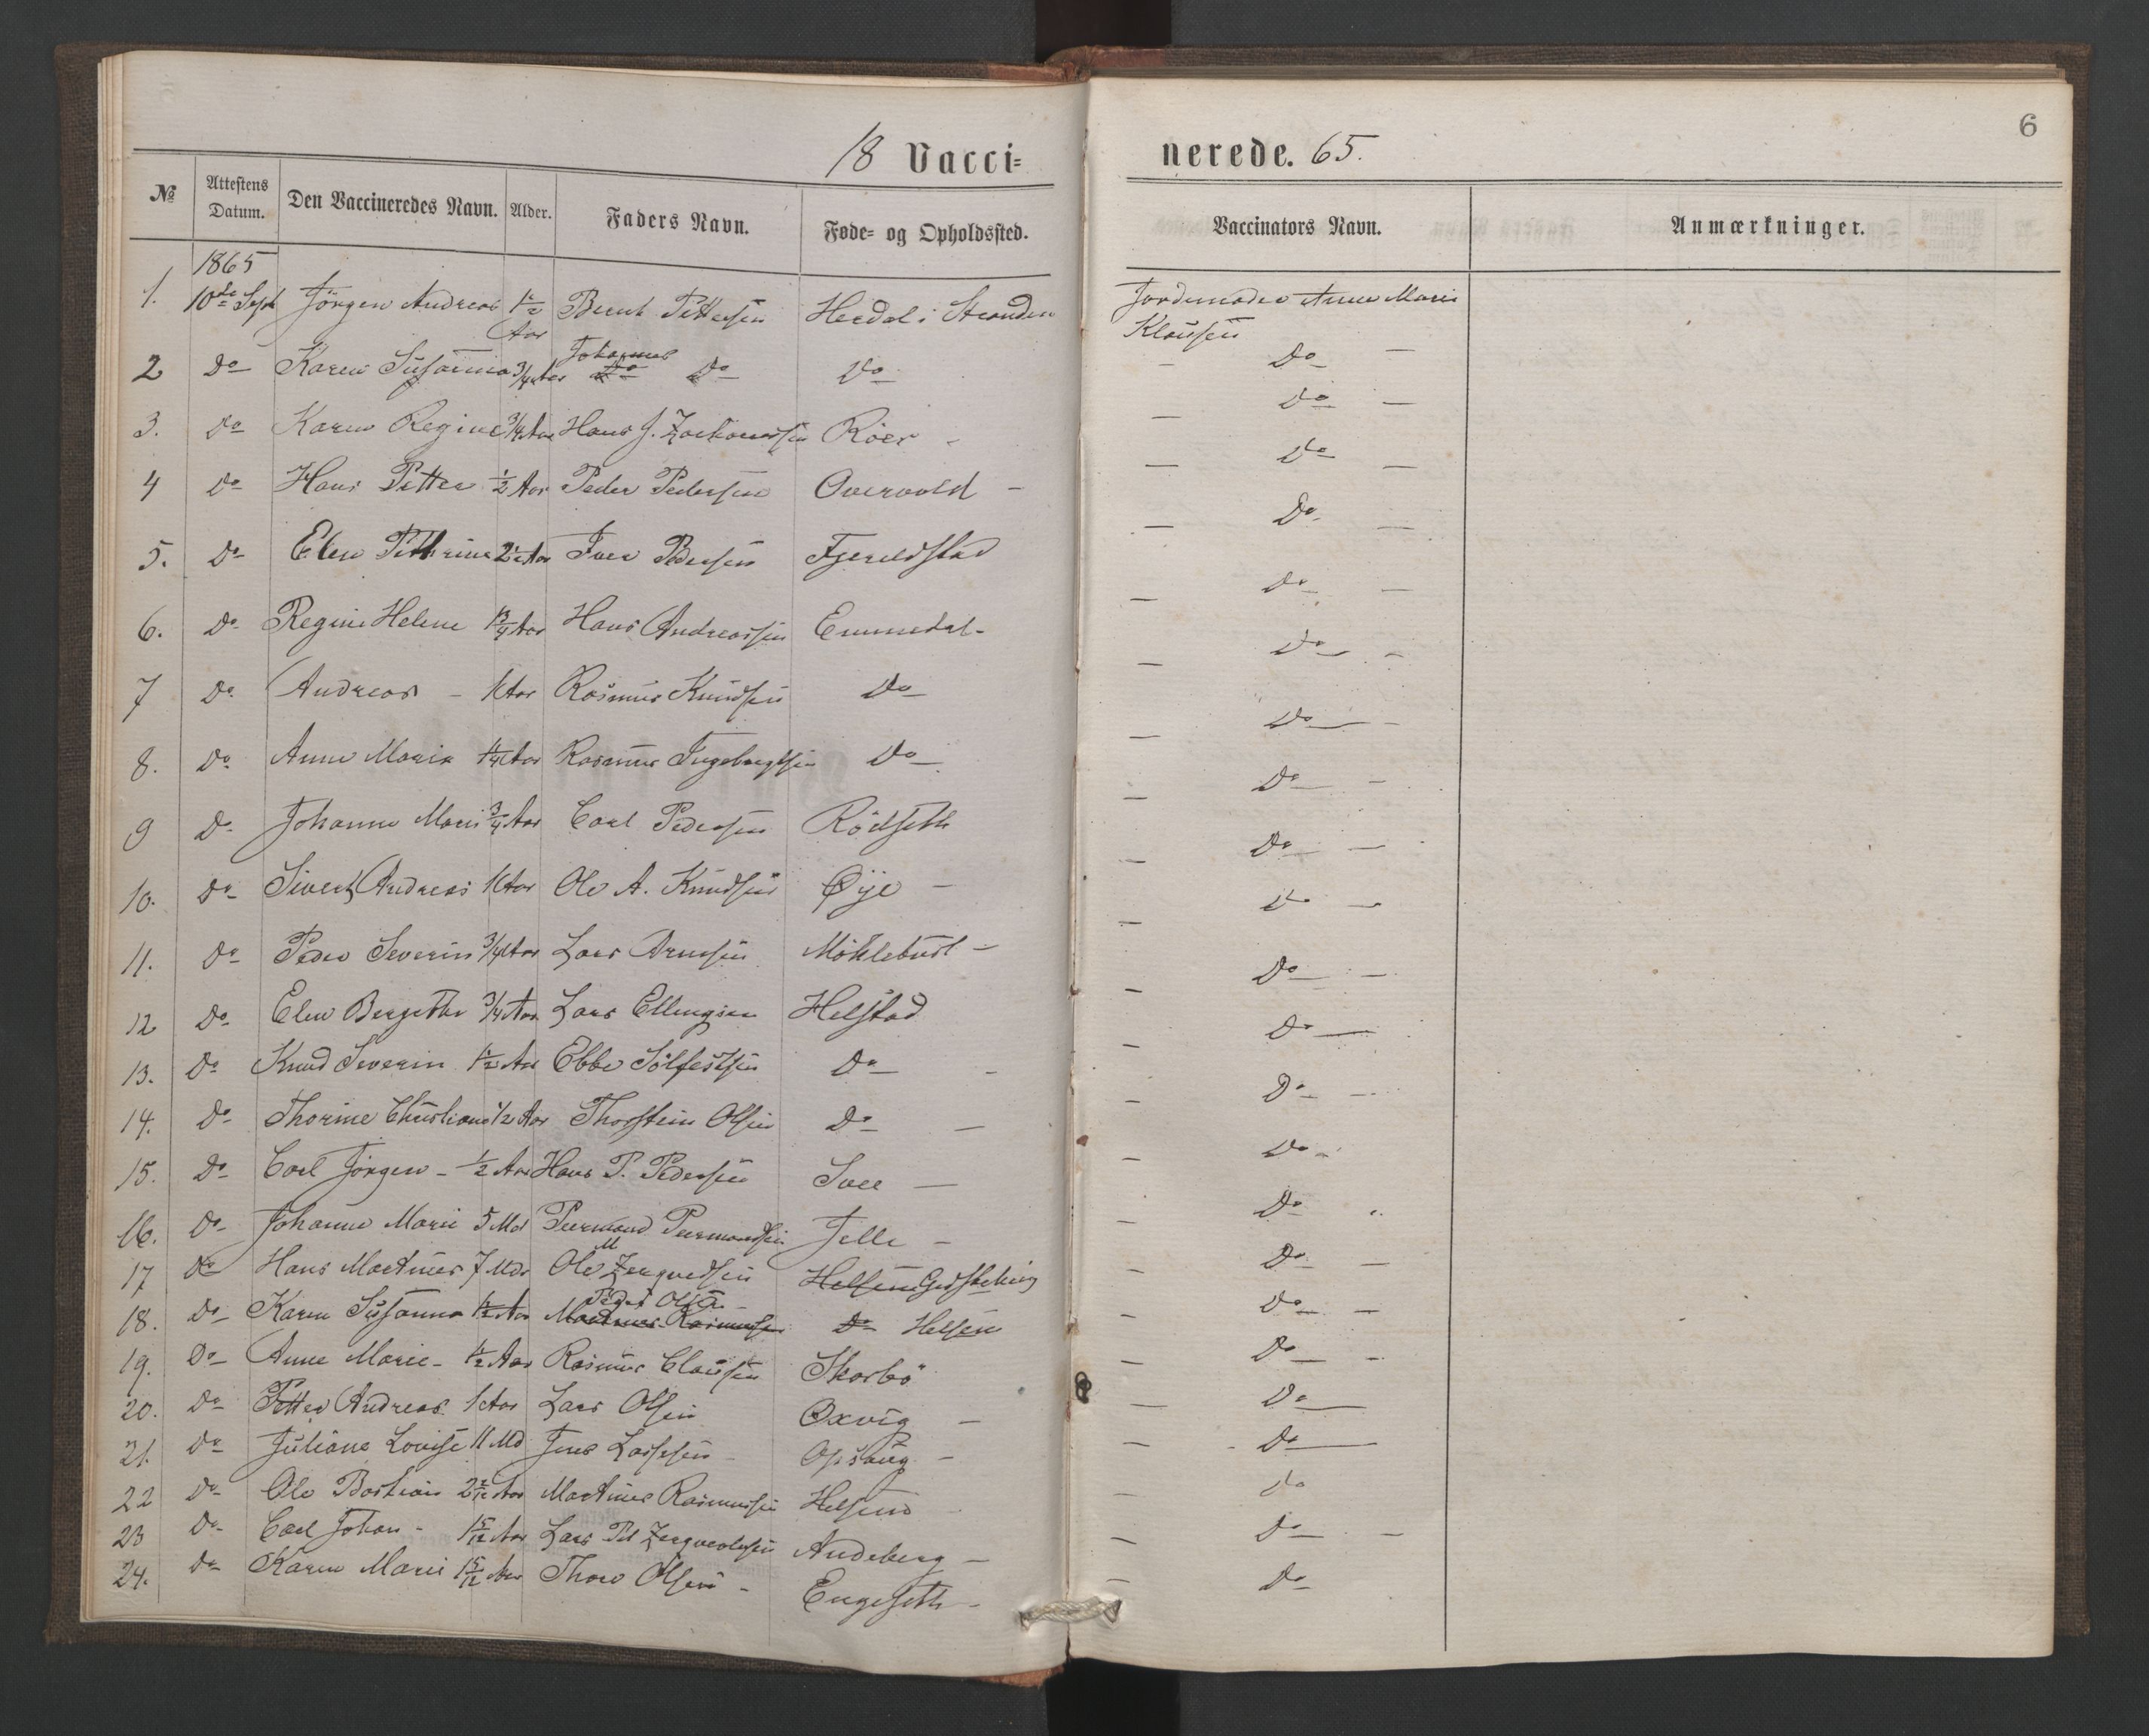 6
18 Vacci=
nerede. 65.
№ Attestens Datum. Den Vaccineredes Navn. Alder. Faders Navn. Føde= og Opholdssted. Vaccinators Navn. Anmærkninger.
1865
1. 10de Sept Jörgen Andreas 1/2 Aar Bernt Pettersen Herdal i Stranden Jordemoder Anne Marie Klausen
2 Do Karen Susanna 3/4 Aar Johannes Do Do Do
3. Do Karen Regine 3/4 Aar Hans J. Zachariassen Röer - Do
4 Do Hans Petter 1/2 Aar Peder Pedersen Overvold - Do
5. Do Elen Pettrine Aar Iver Pedersen Fjereldstad Do
6. Do Regine Helene 1 3/4 Aar Hans Andreassen Emmedal - Do
7 Do Andreas - 1 Aar Rasmus Knudsen Do Do
8. Do Anne Marie 1/4 Aar Rasmus Ingebregtsen Do Do
9 Do Johanne Marie 3/4 Aar Carl Pedersen Rödseth Do
10. Do Sivert Andreas 1 Aar Ole A. Knudsen Øye - Do
11. Do Peder Severin 3/4 Aar Lars Arnesen Möklebust - Do
12 Do Elen Bergethe 3/4 Aar Lars Ellingsen Helstad Do
13. Do Knud Severin 1/2 Aar Ebbe Sölfestsen Do - Do
14. Do Thorine Christiane 1/2 Aar Thorstein Olsen Do - Do
15. Do Carl Jörgen - 1/2 Aar Hans P. Pedersen Svee - Do
16. Do Johanne Marie 5 Md Peermand Peermandsen Jelle - Do
17 Do Hans Martinus 7 Mdr Ole M Zergvedsen Helsem Do
18. Do Karen Susanna 1/2 Aar Peder Olsen Martinus Rasmussen Do Helsem Do
19. Do Anne Marie - 1/2 Aar Rasmus Clausen Skorbö Do
20. Do Petter Andreas 1 Aar Lars Olsen Oxvig - Do
21. Do Juliane Lovise 11 Md Jens Larsen - Opsoug - Do
22 Do Ole Bastian 2 Aar Martinus Rasmussen Helsem - Do
23 Do Carl Johan - 1 5/12 Aar Lars Pd Zergvedsen Andeberg - Do
24. Do Karen Marie 1 5/12 Aar Thore Olsen - Engeseth - Do